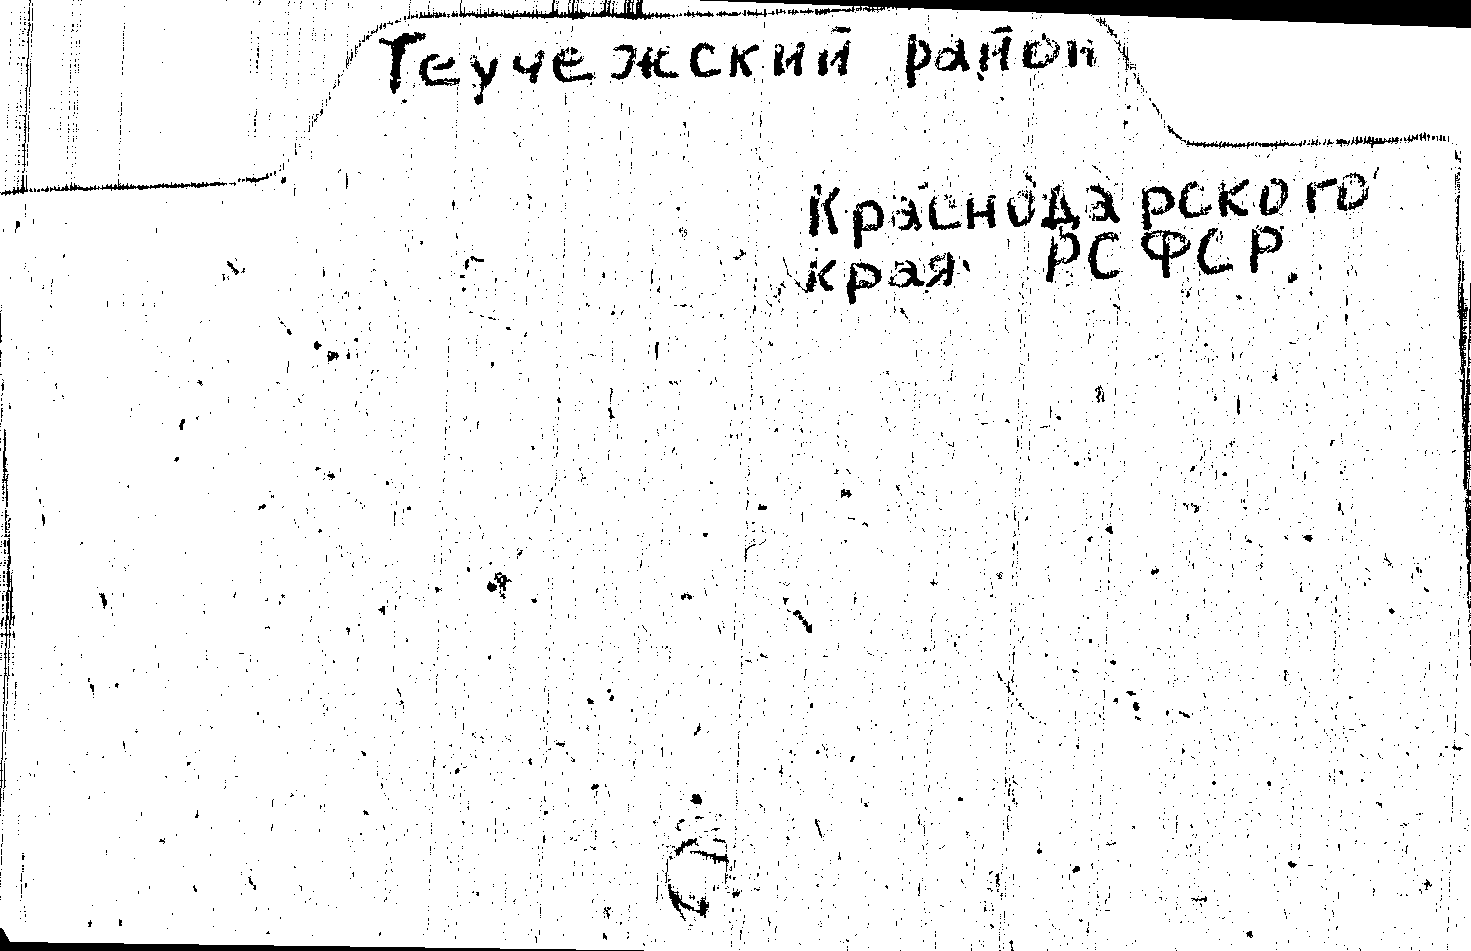 Теучежский район
Краснодарского
края РСФСР.